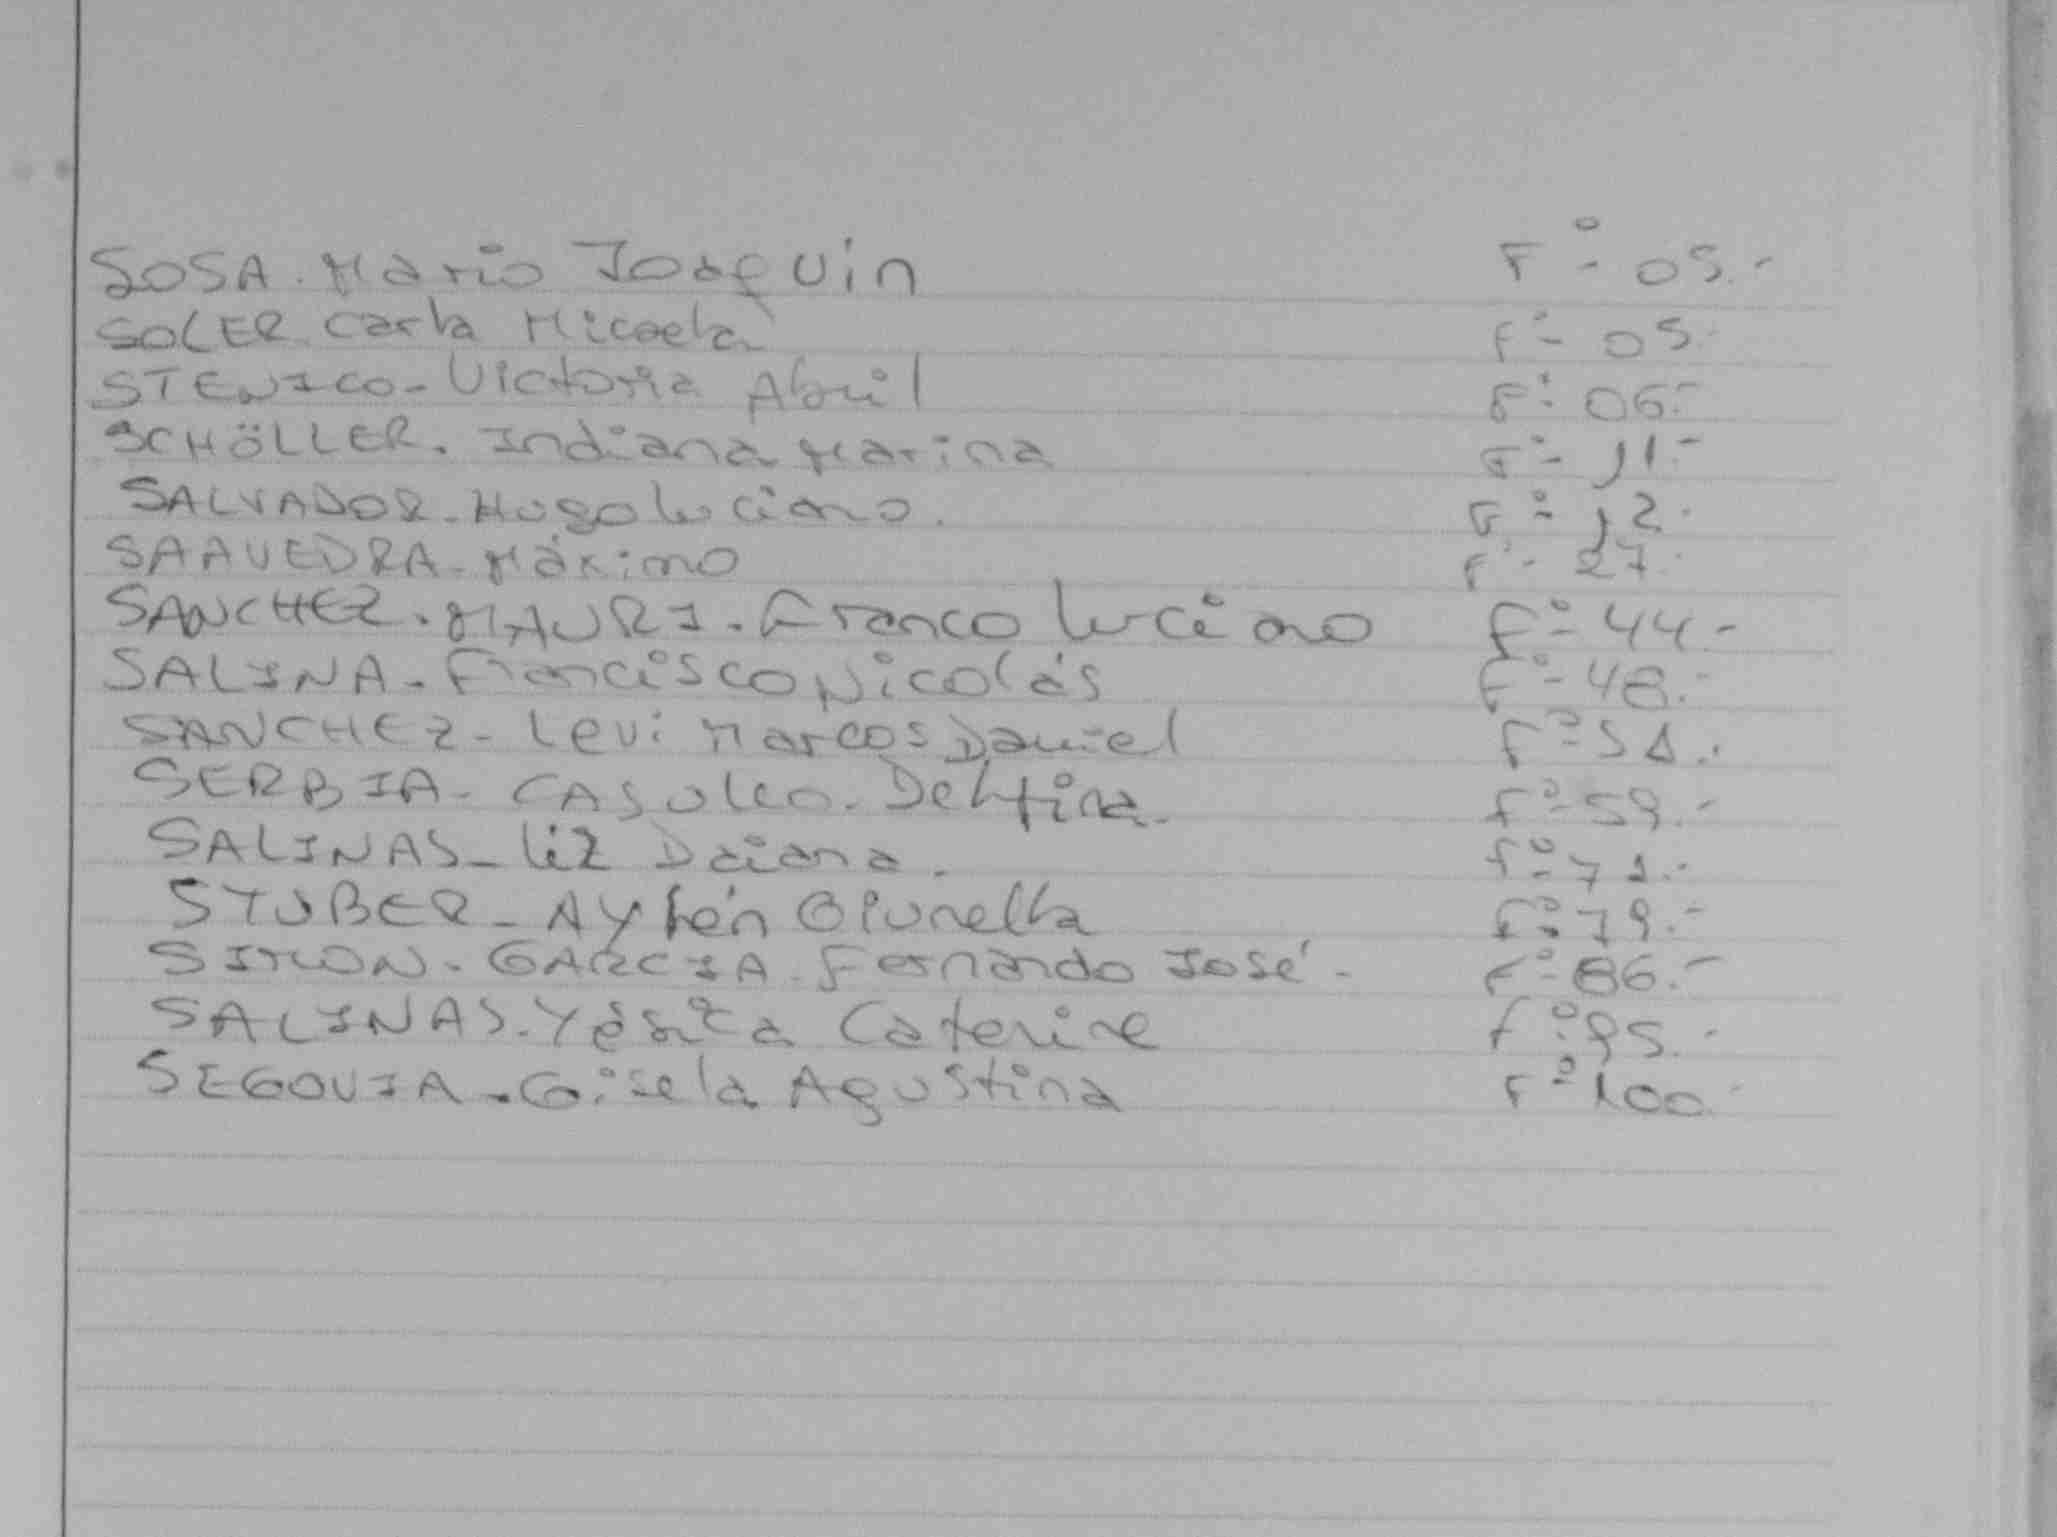 SOSA. Mario Joaquin F° - 05.-
SOLER. Carla Micaela F° - 05.
STENICO - Victoria Abril F° - 06.-
SCHÖLLER. Indiana Marina F° - 11.-
SALVADOR - Hugo Luciano. F° - 12.
SAAVEDRA - Máximo F° - 27.
SANCHEZ. MAURI. Franco Luciano F° - 44.-
SALINA - Francisco Nicolás F° - 48.-
SANCHEZ - Levi Marcos Daniel F° - 51.-
SERBIA - Delfina F° - 59.-
SALINAS - Liz Daiana. F° - 71.-
STUBER - Aylén F° - 79.-
SIMON - GARCIA - Fernando José - F° - 86.-
SALINAS - Yésica Caterine F° - 95.-
SEGOVIA - Gisela Agustina F° - 100.-